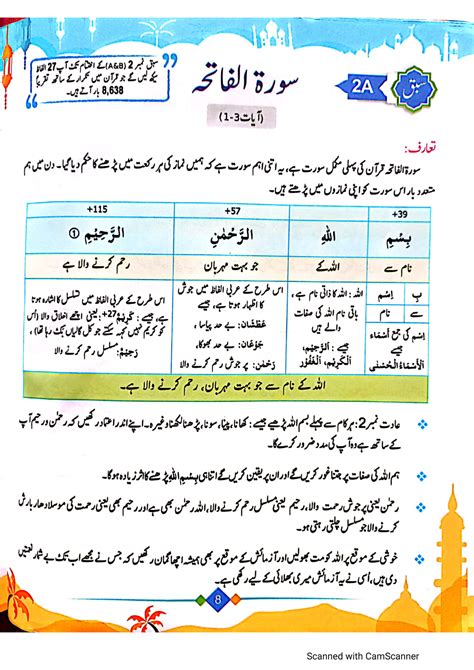 سبق نمبر 2 (A&B) کے اختتام تک آپ 27 الفاظ
سیکھ لیں گے جو قرآن میں تکرار کے ساتھ تقریباً
8,638 بار آتے ہیں۔
سورۃ الفاتحہ
(آیات 3-1)
2A
سبق
تعارف:
سورۃ الفاتحہ قرآن کی پہلی مکمل سورت ہے، یہ اتنی اہم سورت ہے کہ ہمیں نماز کی ہر رکعت میں پڑھنے کا حکم دیا گیا۔ دن میں ہم
متعدد بار اس سورت کو اپنی نمازوں میں پڑھتے ہیں۔
39+
57+
115+
بِسْمِ
اللهِ
الرَّحْمٰنِ
الرَّحِيْمِ ①
نام سے
اللہ کے
جو بہت مہربان
رحم کرنے والا ہے
بِ
اِسْمِ
سے
نام
اِسْم کی جمع أَسْمَاء
اَلْأَسْمَاءُ الْحُسْنٰى
اللہ: اللہ کا ذاتی نام ہے،
باقی نام اللہ کی صفات
ہیں، جیسے: اَلرَّحِيْمُ،
اَلْكَرِيْمُ، اَلْغَفُوْرُ۔
اس طرح کے عربی الفاظ میں جوش
کا اظہار ہوتا ہے، جیسے:
عَطْشَان: بے حد پیاسا،
جَوْعَان: بے حد بھوکا،
رَحْمٰن: پر جوش رحم کرنے والا۔
اس طرح کے عربی الفاظ میں تسلسل کا اشارہ ہوتا
ہے، جیسے: کریم 27+: یعنی اچھے اخلاق والا (اُس
کو کریم نہیں کہہ سکتے جو کل گالیاں تک دے رہا تھا)،
رَحِيْمٌ: مسلسل رحم کرنے والا۔
اللہ کے نام سے جو بہت مہربان، رحم کرنے والا ہے۔
عادت نمبر 2: ہر کام سے پہلے بسم اللہ پڑھیے جیسے: کھانا، پینا، سونا، پڑھنا لکھنا وغیرہ۔ اپنے اندر اعتماد رکھیں کہ رحمٰن و رحیم آپ
کے ساتھ ہے وہ آپ کی مدد ضرور کرے گا۔
ہم اللہ کی صفات پر جتنا غور کریں گے اور ان پر یقین کریں گے اتنا ہی بِسْمِ اللهِ پڑھنے کا اثر زیادہ ہو گا۔
رحمٰن یعنی پرجوش رحمت والا، رحیم یعنی مسلسل رحم کرنے والا، اللہ رحمٰن بھی ہے اور رحیم بھی، یعنی رحمت کی موسلادھار بارش
جو مسلسل چلتی رہتی ہو۔
خوشی کے موقع پر اللہ کو مت بھولیں اور آزمائش کے موقع پر بھی ہمیشہ اچھا گمان رکھیں کہ جس نے مجھے اب تک بے شمار نعمتیں
دی ہیں، اُسی نے یہ آزمائش میری بھلائی کے لیے رکھی ہے۔
8
Scanned with CamScanner